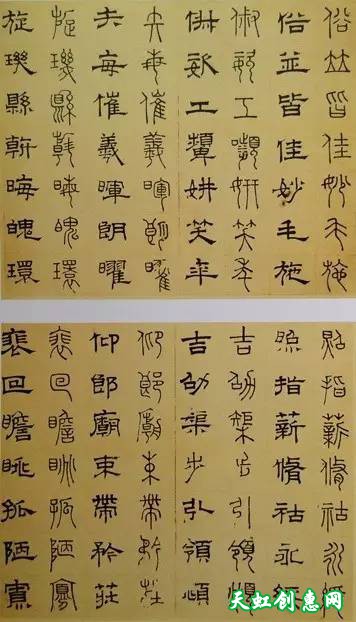 俗竝皆佳妙毛施
俗並皆佳妙毛施
俶姿工顰妍笑年
俶姿工顰妍笑年
矢每催羲暉朗曜
矢每催羲暉朗曜
旋璣縣斡晦魄環
旋璣縣斡晦魄環
照指薪脩祜永綏
照指薪脩祜永綏
吉劭榘步引領頫
吉劭榘步引領頫
仰郎廟束帶矜莊
仰郎廟束帶矜莊
裵回瞻眺孤陋寡
裵回瞻眺孤陋寡
天虹创惠网